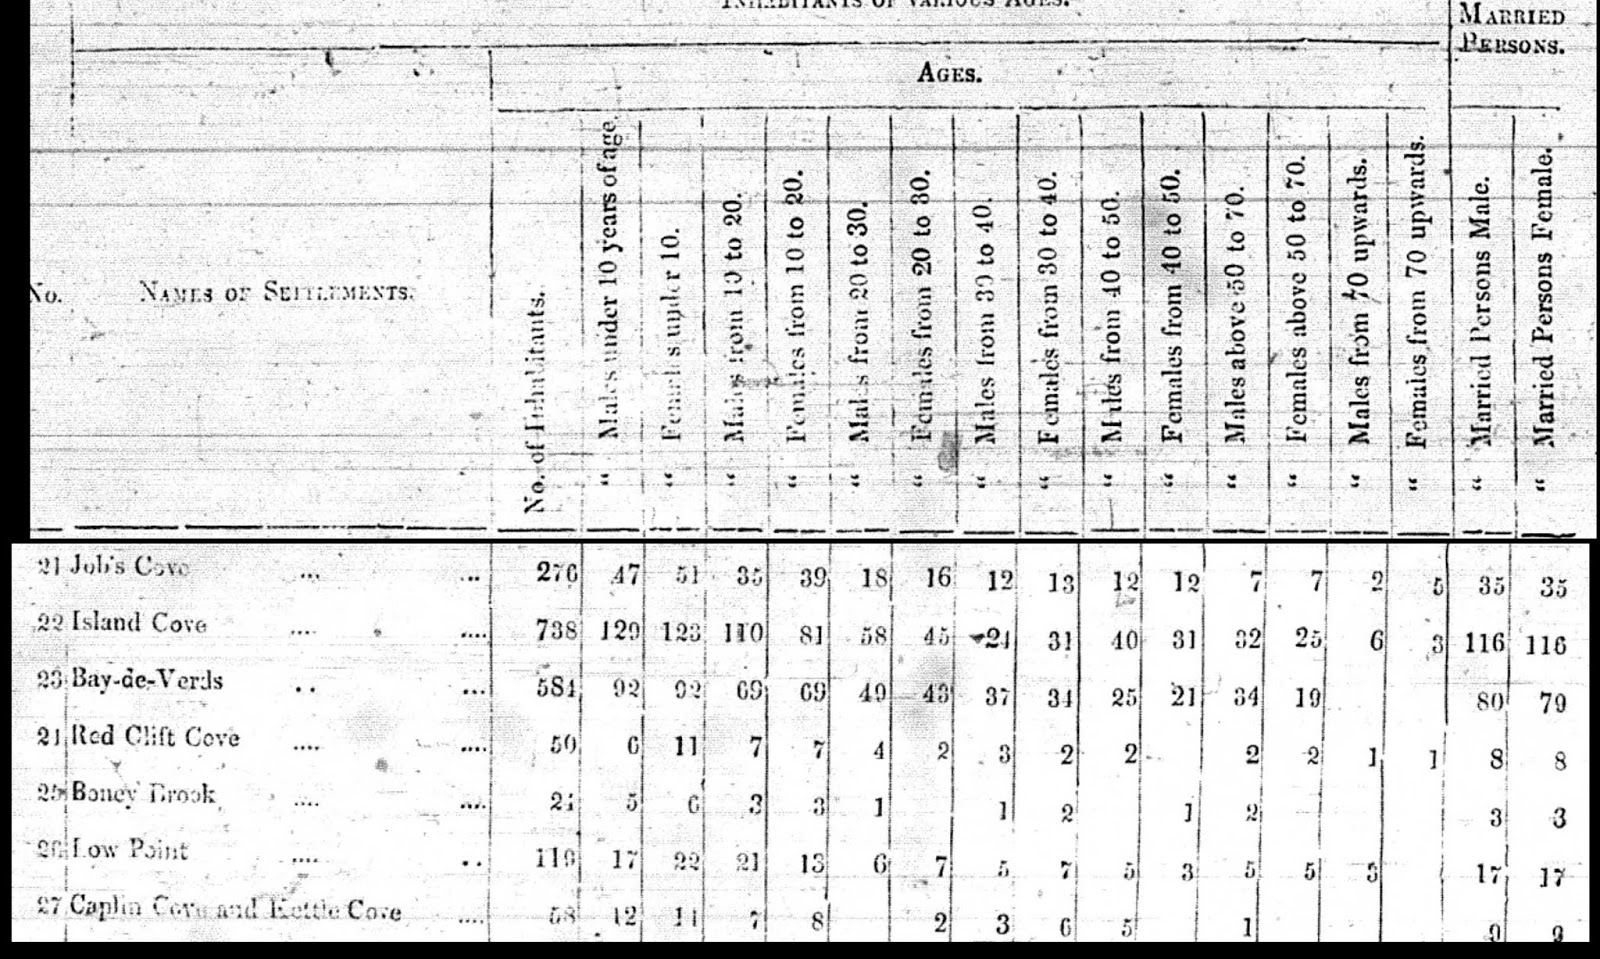 INHABITANTS OF VARIOUS AGES.
MARRIED PERSONS.
AGES.
No.
NAMES OF SETTLEMENTS.
No. of Inhabitants.
“ Males under 10 years of age.
“ Females under 10.
“ Males from 10 to 20.
“ Females from 10 to 20.
“ Males from 20 to 30.
“ Females from 20 to 30.
“ Males from 30 to 40.
“ Females from 30 to 40.
“ Males from 40 to 50.
“ Females from 40 to 50.
“ Males above 50 to 70.
“ Females above 50 to 70.
“ Males from 70 upwards.
“ Females from 70 upwards.
“ Married Persons Male.
“ Married Persons Female.
21 Job's Cove ... ... 276 47 51 35 39 18 16 12 13 12 12 7 7 2 5 35 35
22 Island Cove .... .... 738 129 123 110 81 58 45 24 31 40 31 32 25 6 3 116 116
23 Bay-de-Verds .. ... 584 92 92 69 69 49 43 37 34 25 21 34 19 80 79
24 Red Clift Cove .... .... 50 6 11 7 7 4 2 3 2 2 2 2 1 1 8 8
25 Brook .... .... 24 5 6 3 3 1 1 2 1 2 3 3
26 Low Point .... .. 119 17 22 21 13 6 7 5 7 5 3 5 5 3 17 17
27 Caplin Cove and Kettle Cove .... 58 12 14 7 8 2 3 6 5 1 9 9